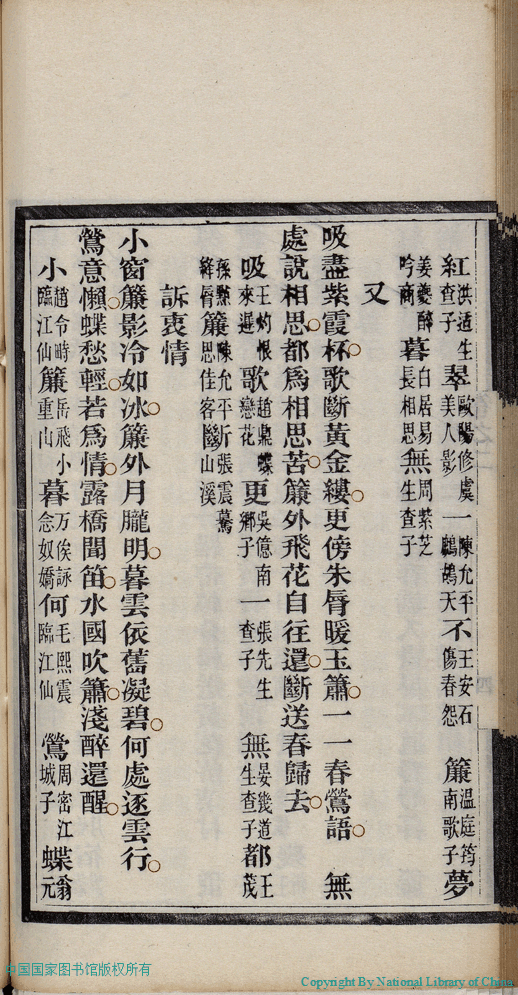 紅洪适生查子翠歐陽修虞美人影一陳允平鷓鴣天不王安石傷春怨簾温庭筠南歌子夢
姜夔醉吟商暮白居易長相思無周紫芝生查子
又
吸盡紫霞杯歌斷黃金縷更傍朱脣暖玉簫一一春鶯語 無
處說相思都爲相思苦簾外飛花自往還斷送春歸去
吸王灼恨來遲歌趙鼎蝶戀花更吳億南鄉子一張先生查子無晏幾道生查子都王茂
孫點絳脣簾陳允平思佳客斷張震驀山溪
訴衷情
小窗簾影冷如冰簾外月朧明暮雲依舊凝碧何處逐雲行
鶯意懶蝶愁輕若爲情露橋聞笛水國吹簫淺醉還醒
小趙令畤臨江仙簾岳飛小重山暮万俟詠念奴嬌何毛熙震臨江仙鶯周密江城子蝶翁元
中国国家图书馆版权所有
Copyright By National Library of China